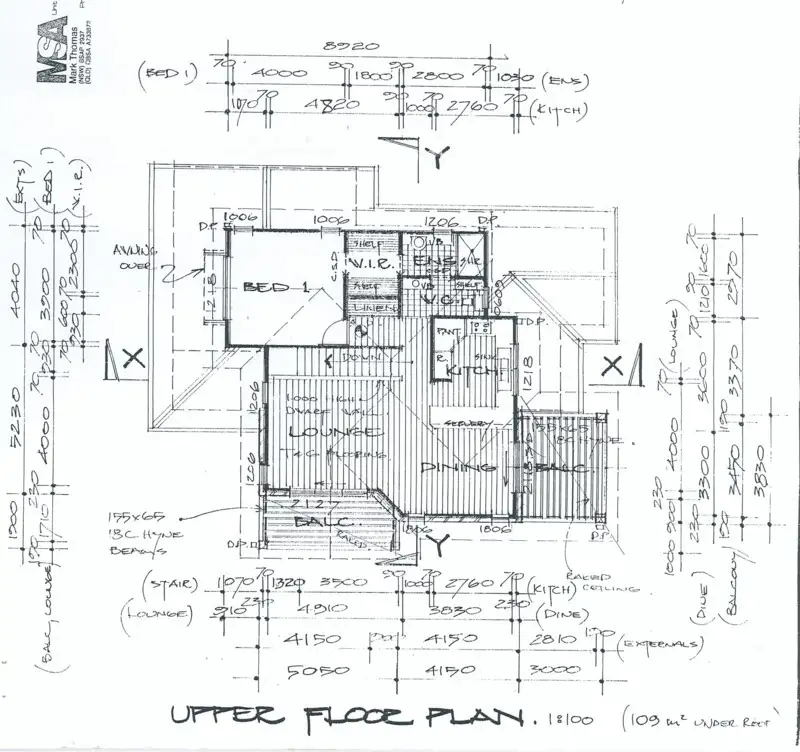 MSA
Mark Thomas
8920
(BED 1) 70 4000 90 1800 90 2800 70 1030 (ENS)
1070 70 4820 90 1000 70 2760 70 (KITCH)
Y
(EXTS)
(BED 1)
(W.I.R.)
4040
5230
1900
70 3900 70
4000 230 1710
(BALC, LOUNGE)
AWNING
OVER
D.P.
1006
1006
1206
D.P.
1218
BED 1
C.S.D
SHELF
W.I.R.
SHELF
LINEN
ENS
SHR
V.B
W.C.
SHELF
0609
D.P.
X
X
DOWN
PANT.
R.
SINK
KITCH
1218
1206
1206
1000 HIGH
DWARF WALL
LOUNGE
T & G FLOORING
SERVERY
DINING
BALC.
155x65
BC HYNE
2127
BALC.
RAKED
155x65
BC HYNE
BEAMS
D.P.
1806
1806
D.P.
Y
RAKED
CEILING
70 (LOUNGE)
4000
230
900
1000
70
90
1210
1600
70
3600
3300
230
(DINE)
2970
3370
190
3450
190
(BALCONY)
3830
(STAIR) 1070 70 1320 3500 90 1000 70 2760 70 (KITCH)
(LOUNGE) 910 230 4910 3830 230 (DINE)
4150 4150 2810 190 (EXTERNALS)
5050 4150 3000
UPPER FLOOR PLAN. 1:100 (109 m² UNDER ROOF